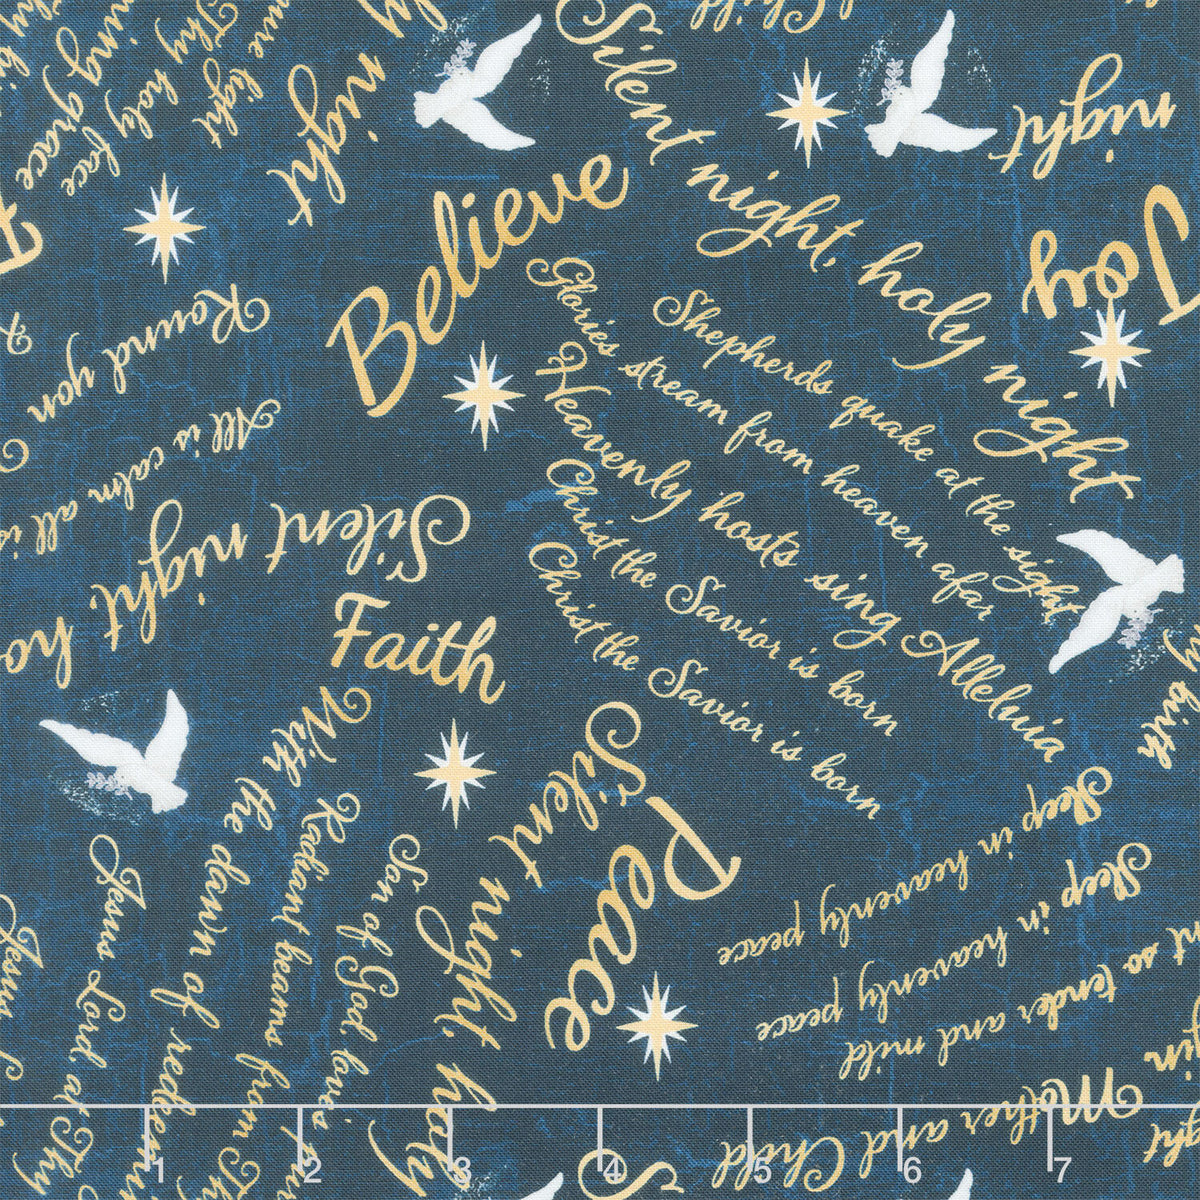 Silent night, holy night
Shepherds quake at the sight
Glories stream from heaven afar
Heavenly hosts sing Alleluia
Christ the Savior is born
Christ the Savior is born
Believe
Joy
night
night
pure light
Thy holy face
grace
Round yon
All is calm all is
Silent night, ho
Faith
With the dawn of redee
Radiant beams from Thy
Son of God love's pur
Jesus Lord, at Thy
Jesus
Silent night, holy
Peace
birth
Sleep in heavenly peace
Sleep in heavenly peace
nt so tender and mild
gin Mother and Child
ght
1 2 3 4 5 6 7